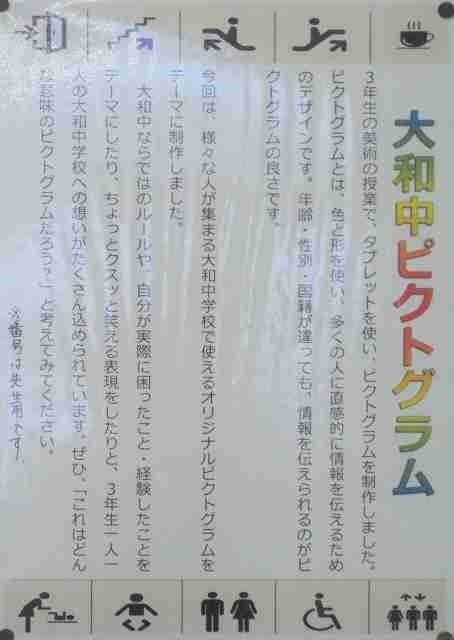 大和中ピクトグラム
３年生の美術の授業で、タブレットを使い、ピクトグラムを制作しました。
ピクトグラムとは、色と形を使い、多くの人に直感的に情報を伝えるため
のデザインです。年齢・性別・国籍が違っても、情報を伝えられるのがピ
クトグラムの良さです。
今回は、様々な人が集まる大和中学校で使えるオリジナルピクトグラムを
テーマに制作しました。
大和中ならではのルールや、自分が実際に困ったこと・経験したことを
テーマにしたり、ちょっとクスッと笑える表現をしたりと、３年生一人一
人の大和中学校への想いがたくさん込められています。ぜひ、「これはどん
な意味のピクトグラムだろう？」と考えてみてください。
※番号は先生用です！